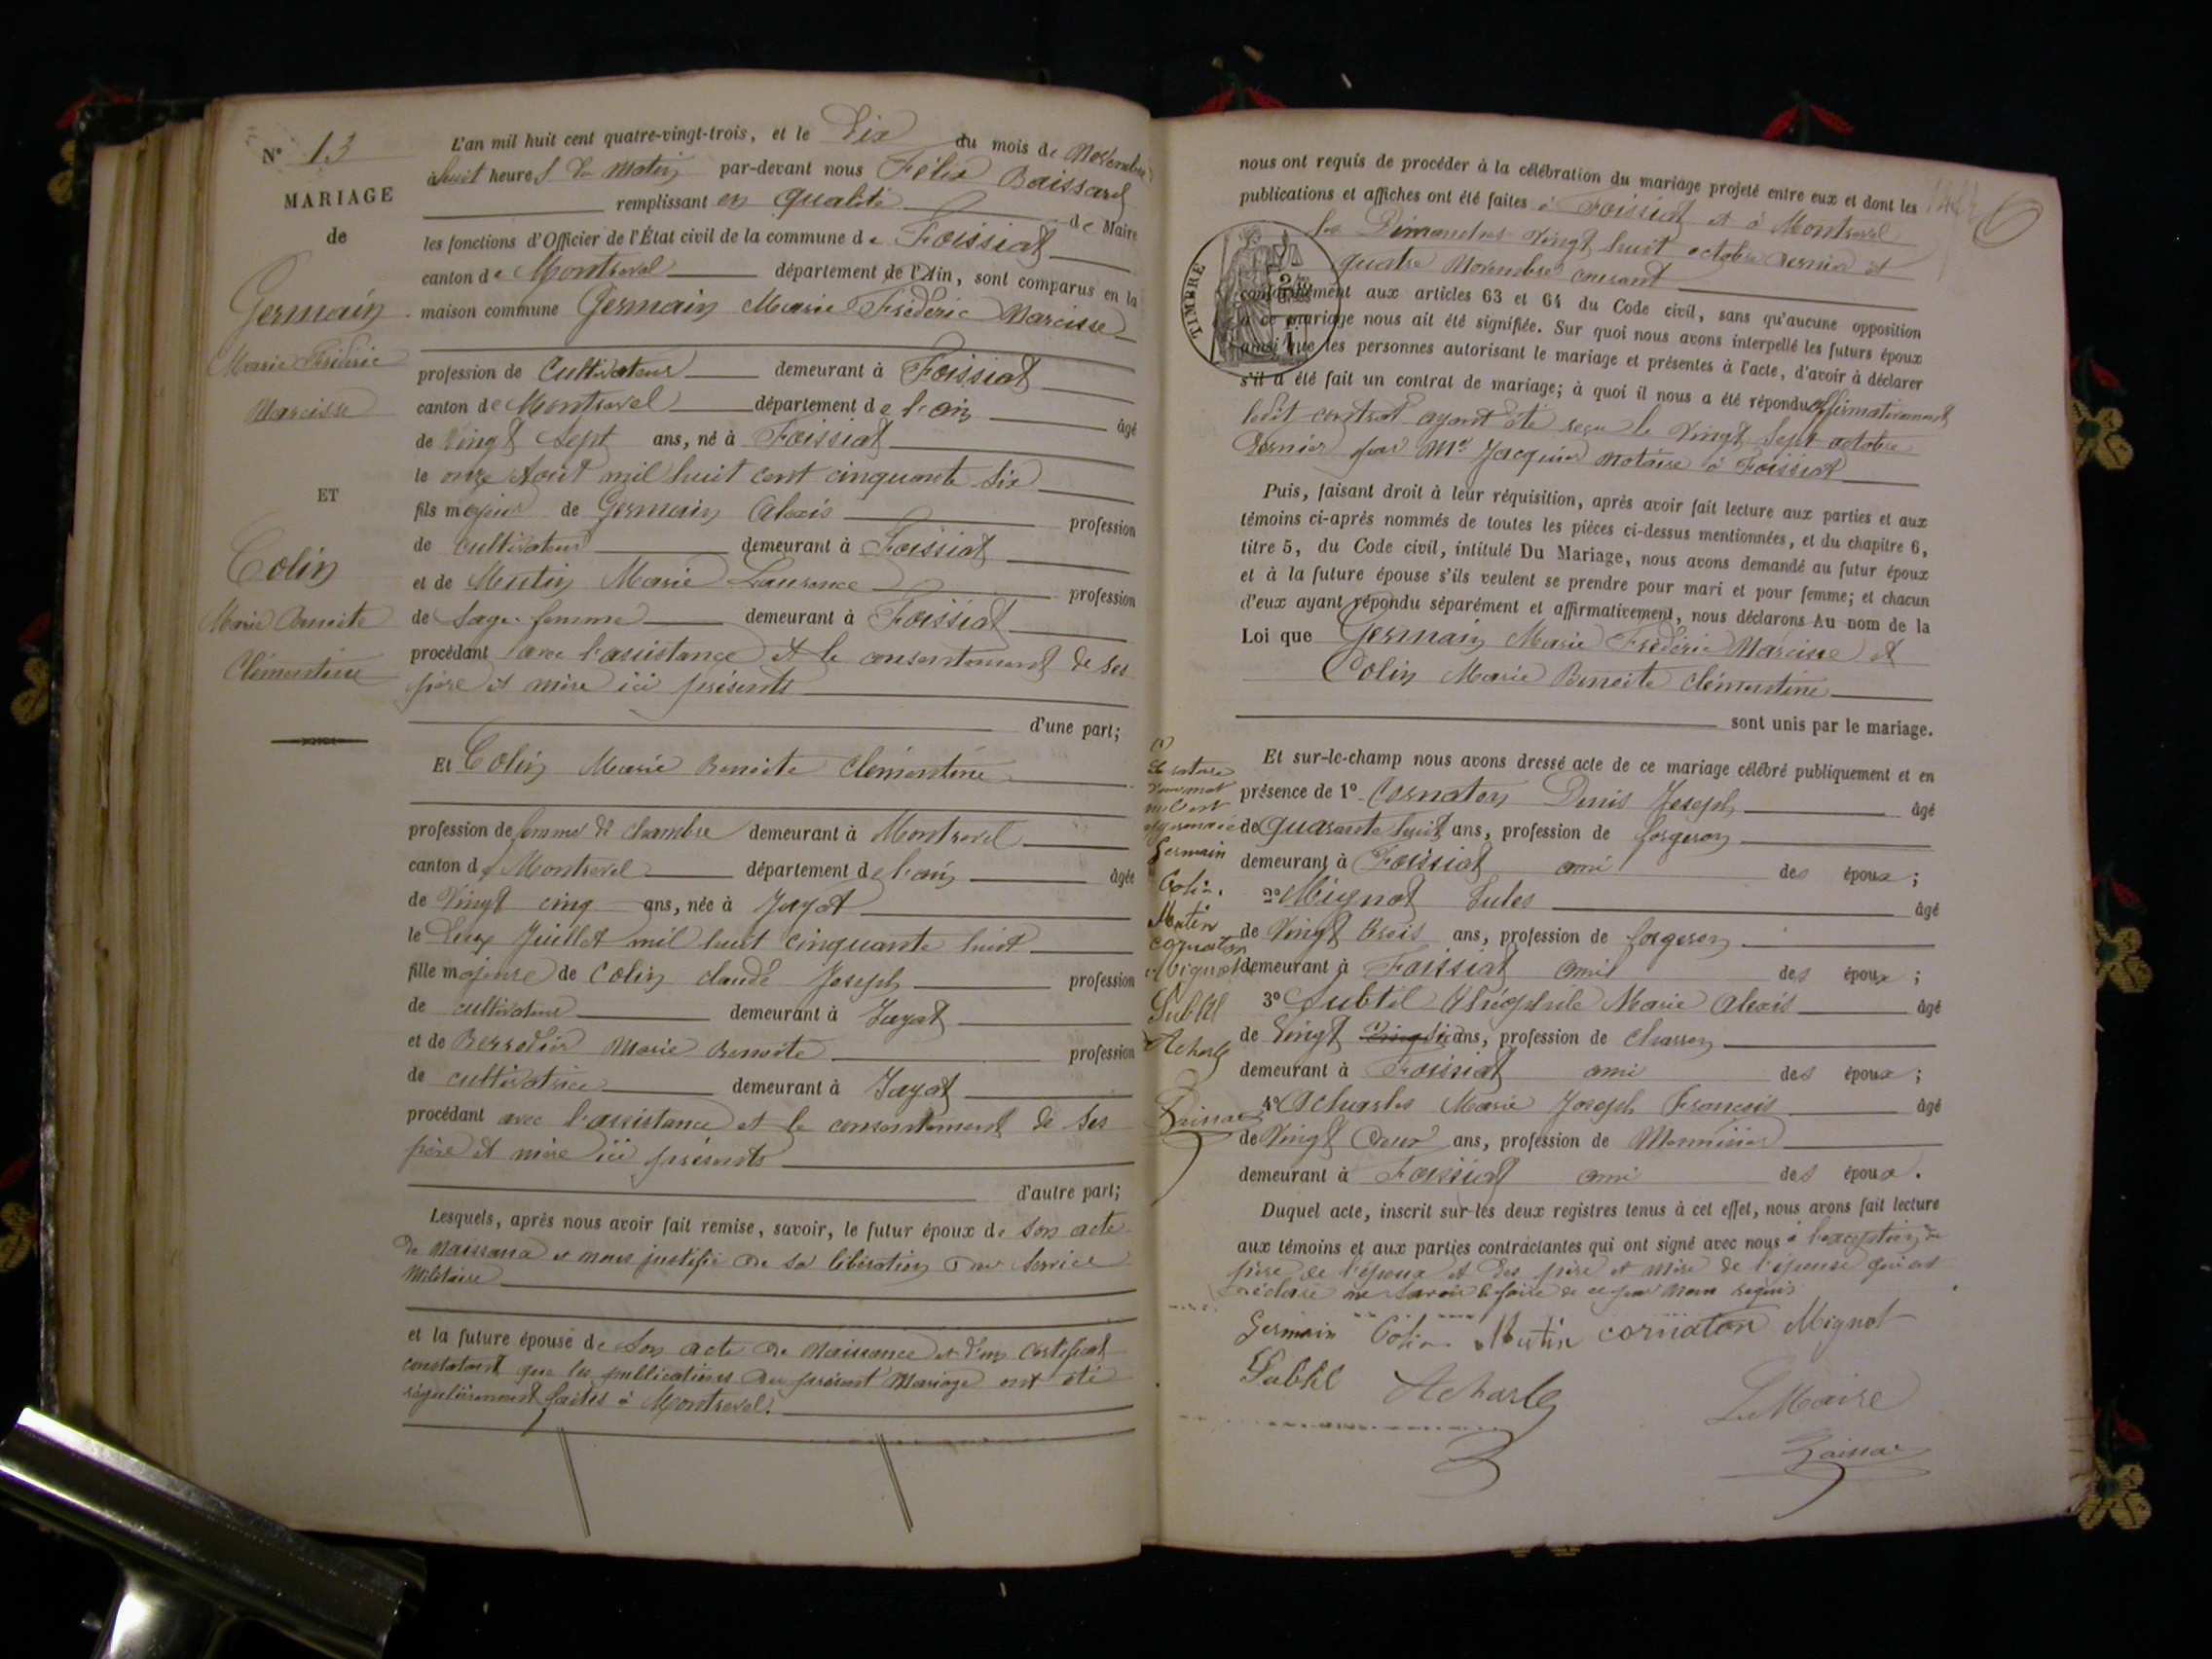 N° 13
MARIAGE
de
Germain
Marie Frédéric
Narcisse
ET
Colin
Marie Benoite
Clémentine
L'an mil huit cent quatre-vingt-trois, et le Dix du mois de Novembre
à huit heures du matin par-devant nous Félix Boissard
remplissant en qualité de Maire
les fonctions d'Officier de l'État civil de la commune de Foissiat
canton de Montrevel département de l'Ain, sont comparus en la
maison commune Germain Marie Frédéric Narcisse
profession de Cultivateur demeurant à Foissiat
canton de Montrevel département de l'ain âgé
de vingt Sept ans, né à Foissiat
le onze Aout mil huit cent cinquante six
fils majeur de Germain Alexis profession
de cultivateur demeurant à Foissiat
et de Mutin Marie Laurence profession
de Sage-femme demeurant à Foissiat
procédant avec l'assistance et le consentement de ses
père et mère ici présents
d'une part;
Et Colin Marie Benoite Clémentine
profession de femme de chambre demeurant à Montrevel
canton de Montrevel département de l'ain âgée
de Vingt cinq ans, née à Jayat
le Deux Juillet mil huit cinquante huit
fille majeure de Colin Claude Joseph profession
de cultivateur demeurant à Jayat
et de Marie Benoite profession
de cultivatrice demeurant à Jayat
procédant avec l'assistance et le consentement de ses
père et mère ici présents
d'autre part;
Lesquels, après nous avoir fait remise, savoir, le futur époux de son acte
de Naissance et nous justifié de sa libération du Service
Militaire
et la future épouse de son acte de Naissance et d'un certificat
constatant que les publications du présent Mariage ont été
régulièrement faites à Montrevel.
nous ont requis de procéder à la célébration du mariage projeté entre eux et dont les
publications et affiches ont été faites à Foissiat et à Montrevel
les Dimanches vingt huit octobre dernier et
quatre Novembre courant
TIMBRE
conformément aux articles 63 et 64 du Code civil, sans qu'aucune opposition
à ce mariage nous ait été signifiée. Sur quoi nous avons interpellé les futurs époux
ainsi que les personnes autorisant le mariage et présentes à l'acte, d'avoir à déclarer
s'il a été fait un contrat de mariage; à quoi il nous a été répondu affirmativement
ledit contrat ayant été reçu le Vingt Sept octobre
dernier par Me Jacquier notaire à Foissiat
Puis, faisant droit à leur réquisition, après avoir fait lecture aux parties et aux
témoins ci-après nommés de toutes les pièces ci-dessus mentionnées, et du chapitre 6,
titre 5, du Code civil, intitulé Du Mariage, nous avons demandé au futur époux
et à la future épouse s'ils veulent se prendre pour mari et pour femme; et chacun
d'eux ayant répondu séparément et affirmativement, nous déclarons Au nom de la
Loi que Germain Marie Frédéric Narcisse et
Colin Marie Benoite Clémentine
sont unis par le mariage.
Et sur-le-champ nous avons dressé acte de ce mariage célébré publiquement et en
présence de 1° Cornaton Denis Joseph âgé
de quarante huit ans, profession de forgeron
demeurant à Foissiat ami des époux;
2° Mignot Jules âgé
de Vingt trois ans, profession de forgeron
demeurant à Foissiat ami des époux;
3° Subtil Théophile Marie Alexis âgé
de Vingt six ans, profession de charron
demeurant à Foissiat ami des époux;
4° Acharles Marie Joseph François âgé
de Vingt Deux ans, profession de Menuisier
demeurant à Foissiat ami des époux.
Duquel acte, inscrit sur les deux registres tenus à cet effet, nous avons fait lecture
aux témoins et aux parties contractantes qui ont signé avec nous à l'exception du
père de l'époux et des père et mère de l'épouse qui ont
déclaré ne savoir le faire de ce par nous requis
Germain Colin Mutin cornaton Mignot
Subtil Acharles Le Maire
Boissard
La rature
d'un mot
nul est
approuvée
Germain
Colin.
Mutin
cornaton
Mignot
Subtil
Acharles
Boissard